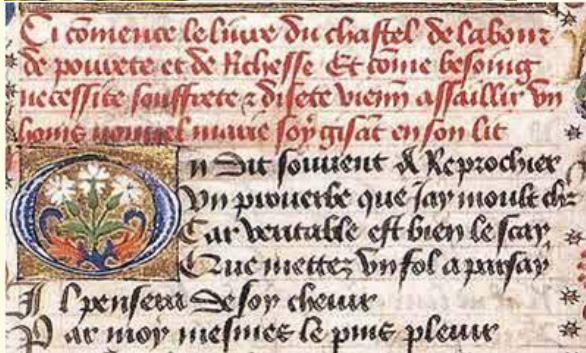 Ci cõmence le liure du chastel de labour
de pourete et de Richesse Et cõme besoing
necessite souffrete ⁊ disete vienn assaillir vn
hom̃e nouuel marie soy gisãt en son lit
On dit souuent & Reprochier
Vn prouerbe que Jay moult chr
Car veritable est bien le scay
Que mettez vn fol a par say
Il pensera de soy cheuir
Par moy mesmes le puis pleuir